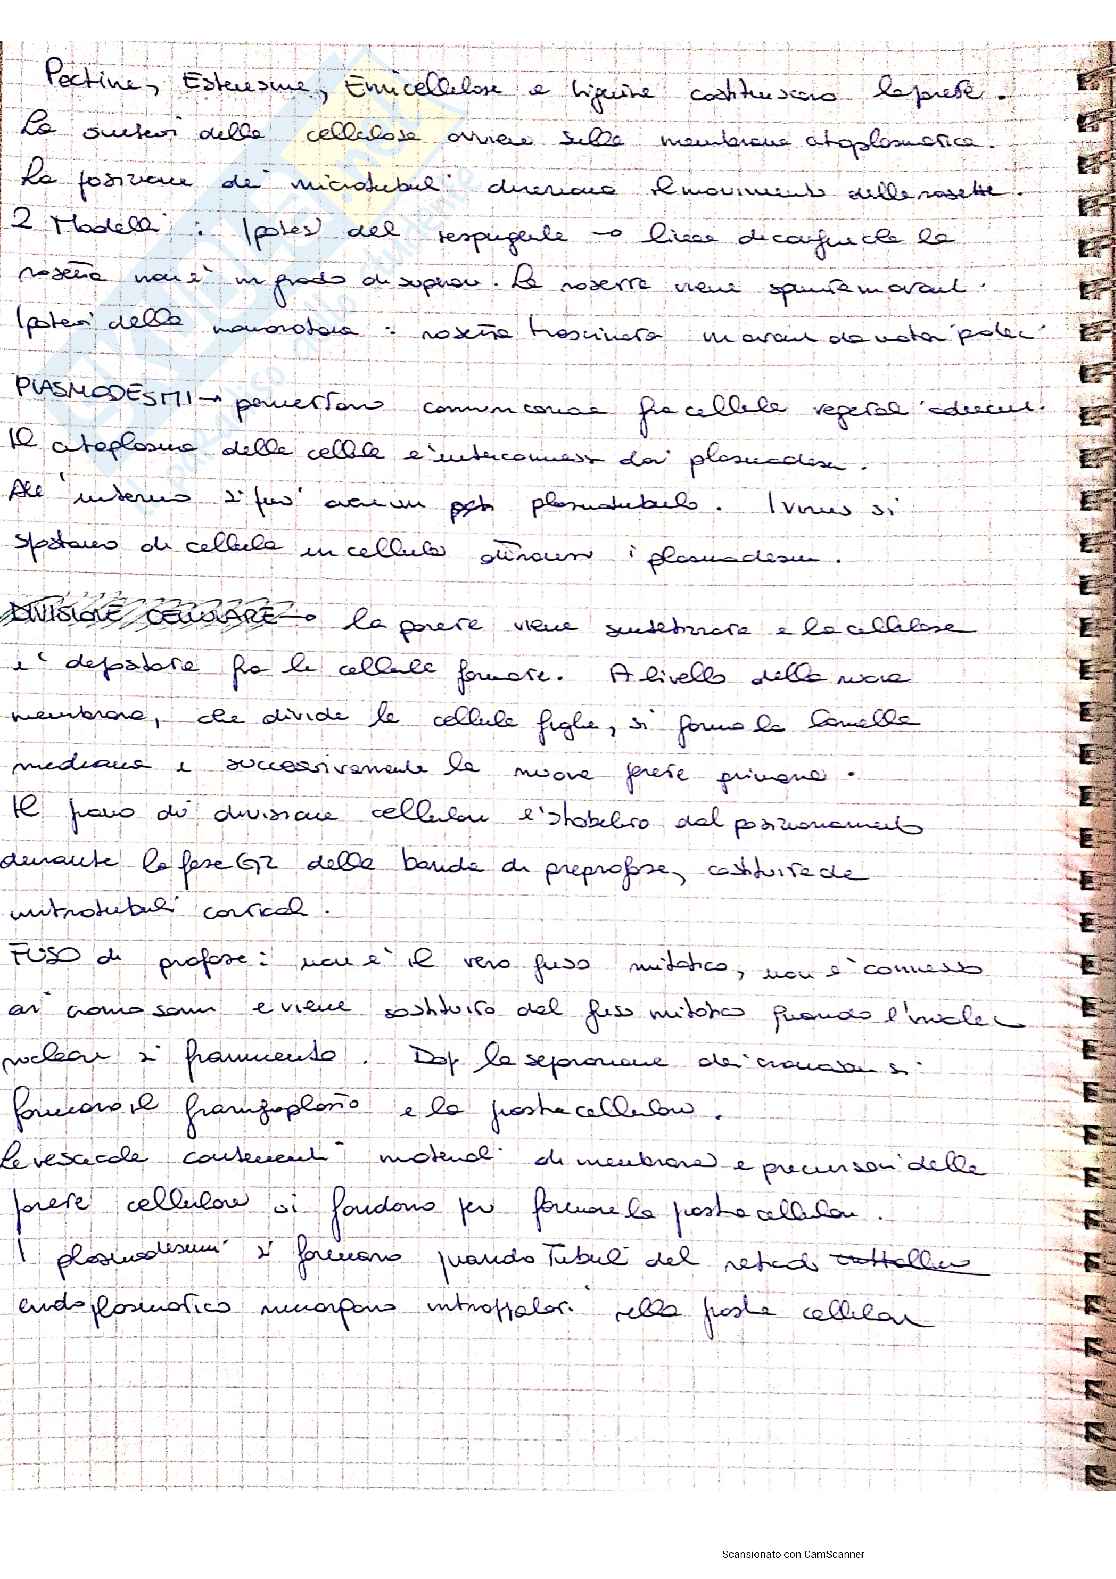 Pectine, Estensine, Emicellulose e lignine costituiscono la parete.
La sintesi della cellulosa avviene sulla membrana citoplasmatica.
La posizione dei microtubuli direziona il movimento delle rosette.
2 Modelli: Ipotesi del respingente → linea di confine che la
rosetta non è in grado di superare. La rosetta viene spinta in avanti.
Ipotesi della monorotaia: rosetta trascinata in avanti da motori
PLASMODESMI → permettono comunicazione fra cellule vegetali adiacenti.
Il citoplasma delle cellule è interconnesso dai plasmodesmi.
All'interno si può avere un plasmotubulo. I virus si
spostano di cellula in cellula attraverso i plasmodesmi.
DIVISIONE CELLULARE → la parete viene sintetizzata e la cellulosa
è depositata fra le cellule formate. A livello della nuova
membrana, che divide le cellule figlie, si forma la lamella
mediana e successivamente la nuova parete primaria.
Il piano di divisione cellulare è stabilito dal posizionamento
durante la fase G2 della banda di preprofase, costituita da
mitrotubuli corticali.
FUSO di profase: non è il vero fuso mitotico, non è connesso
ai cromosomi e viene sostituito dal fuso mitotico quando l'involucro
nucleare si frammenta. Dopo la separazione dei cromosomi si
formano il fragmoplasto e la piastra cellulare.
Le vescicole contenenti materiali di membrana e precursori della
parete cellulare si fondono per formare la piastra cellulare.
I plasmodesmi si formano quando Tubuli del reticolo
endoplasmatico rimangono intrappolati nella piastra cellulare
Scansionato con CamScanner